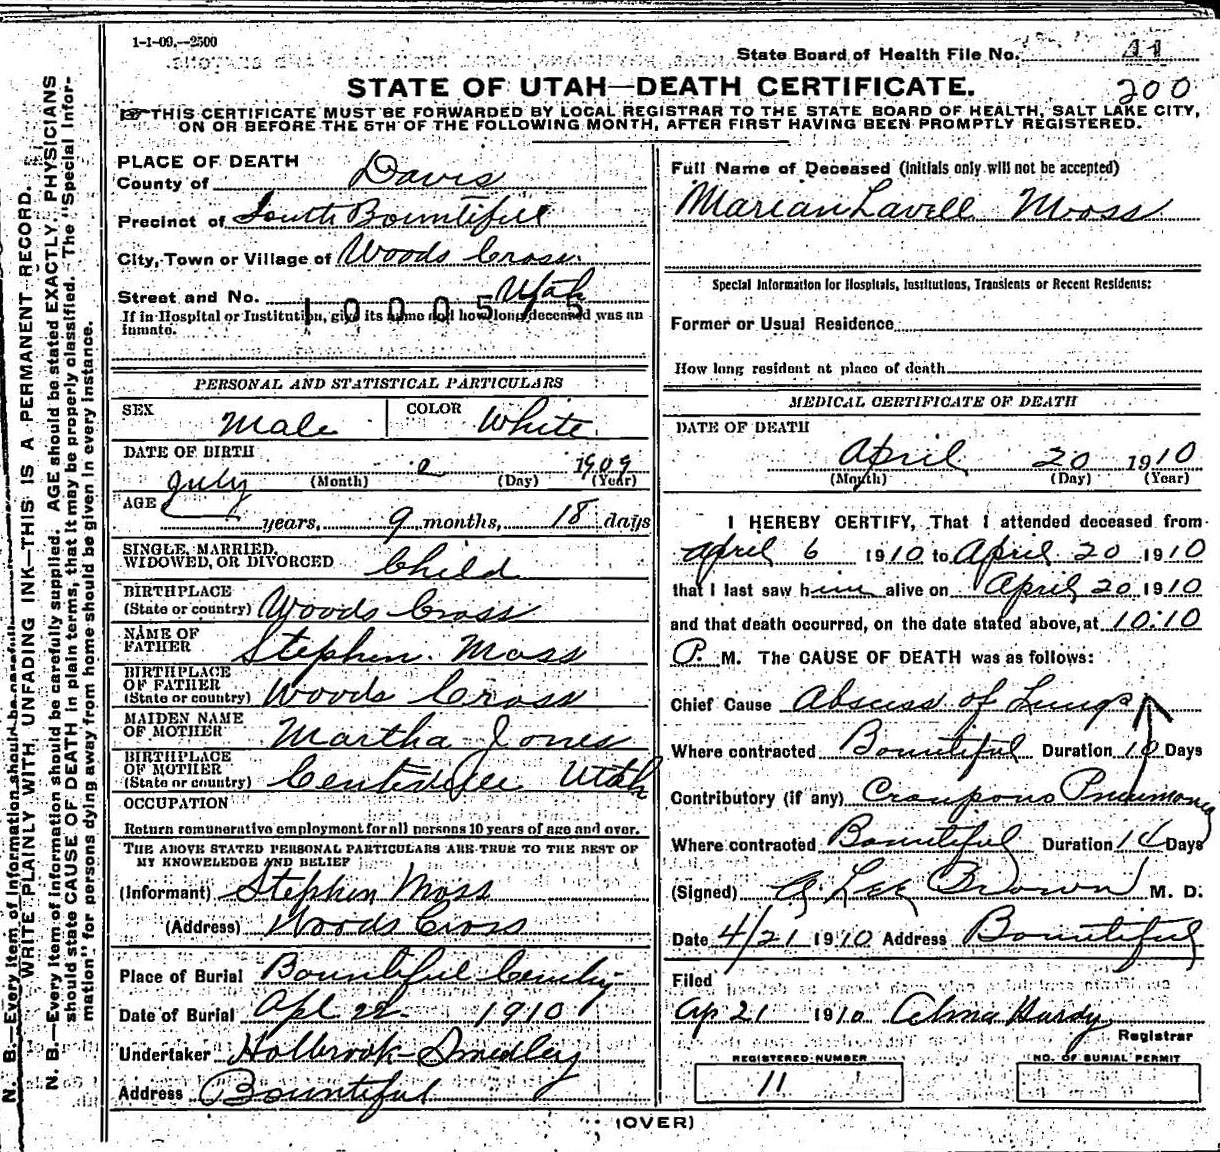 1-1-09.--2500
State Board of Health File No. 44
STATE OF UTAH—DEATH CERTIFICATE.
200
☞THIS CERTIFICATE MUST BE FORWARDED BY LOCAL REGISTRAR TO THE STATE BOARD OF HEALTH, SALT LAKE CITY,
ON OR BEFORE THE 5TH OF THE FOLLOWING MONTH, AFTER FIRST HAVING BEEN PROMPTLY REGISTERED.
PLACE OF DEATH
County of Davis
Precinct of South Bountiful
City, Town or Village of Woods Cross.
Street and No. Utah
1000575
If in Hospital or Institution, give its name and how long deceased was an
inmate.
PERSONAL AND STATISTICAL PARTICULARS
SEX Male COLOR White
DATE OF BIRTH
July 2 1909
(Month) (Day) (Year)
AGE
years, 9 months, 18 days
SINGLE, MARRIED,
WIDOWED, OR DIVORCED Child
BIRTHPLACE
(State or country) Woods Cross
NAME OF
FATHER Stephen. Moss
BIRTHPLACE
OF FATHER
(State or country) Woods Cross
MAIDEN NAME
OF MOTHER Martha Jones
BIRTHPLACE
OF MOTHER
(State or country) Utah
OCCUPATION
Return remunerative employment for all persons 10 years of age and over.
THE ABOVE STATED PERSONAL PARTICULARS ARE TRUE TO THE BEST OF
MY KNOWLEDGE AND BELIEF
(Informant) Stephen Moss
(Address) Woods Cross
Place of Burial Bountiful
Date of Burial Apl 22 1910
Undertaker Holbrook-Smedley
Address Bountiful
Full Name of Deceased (initials only will not be accepted)
Marian Lavell Moss
Special Information for Hospitals, Institutions, Transients or Recent Residents:
Former or Usual Residence
How long resident at place of death
MEDICAL CERTIFICATE OF DEATH
DATE OF DEATH
April 20 1910
(Month) (Day) (Year)
I HEREBY CERTIFY, That I attended deceased from
April 6 1910 to April 20 1910
that I last saw him alive on April 20 1910
and that death occurred, on the date stated above, at 10:10
P. M. The CAUSE OF DEATH was as follows:
Chief Cause Abscess of Lungs
Where contracted Bountiful Duration 10 Days
Contributory (if any) Croupous Pneumonia
Where contracted Bountiful Duration 14 Days
(Signed) Lee Brown M. D.
Date 4/21 1910 Address Bountiful
Filed
Ap 21 1910 Alma Hardy
Registrar
REGISTERED NUMBER
11
NO. OF BURIAL PERMIT
(OVER)
WRITE PLAINLY WITH UNFADING INK—THIS IS A PERMANENT RECORD.
N. B.—Every item of information should be carefully supplied. AGE should be stated EXACTLY. PHYSICIANS
should state CAUSE OF DEATH in plain terms, that it may be properly classified. The "Special Infor-
mation" for persons dying away from home should be given in every instance.